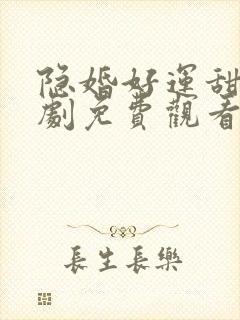 隐婚好運甜
劇免費觀看
長生長樂